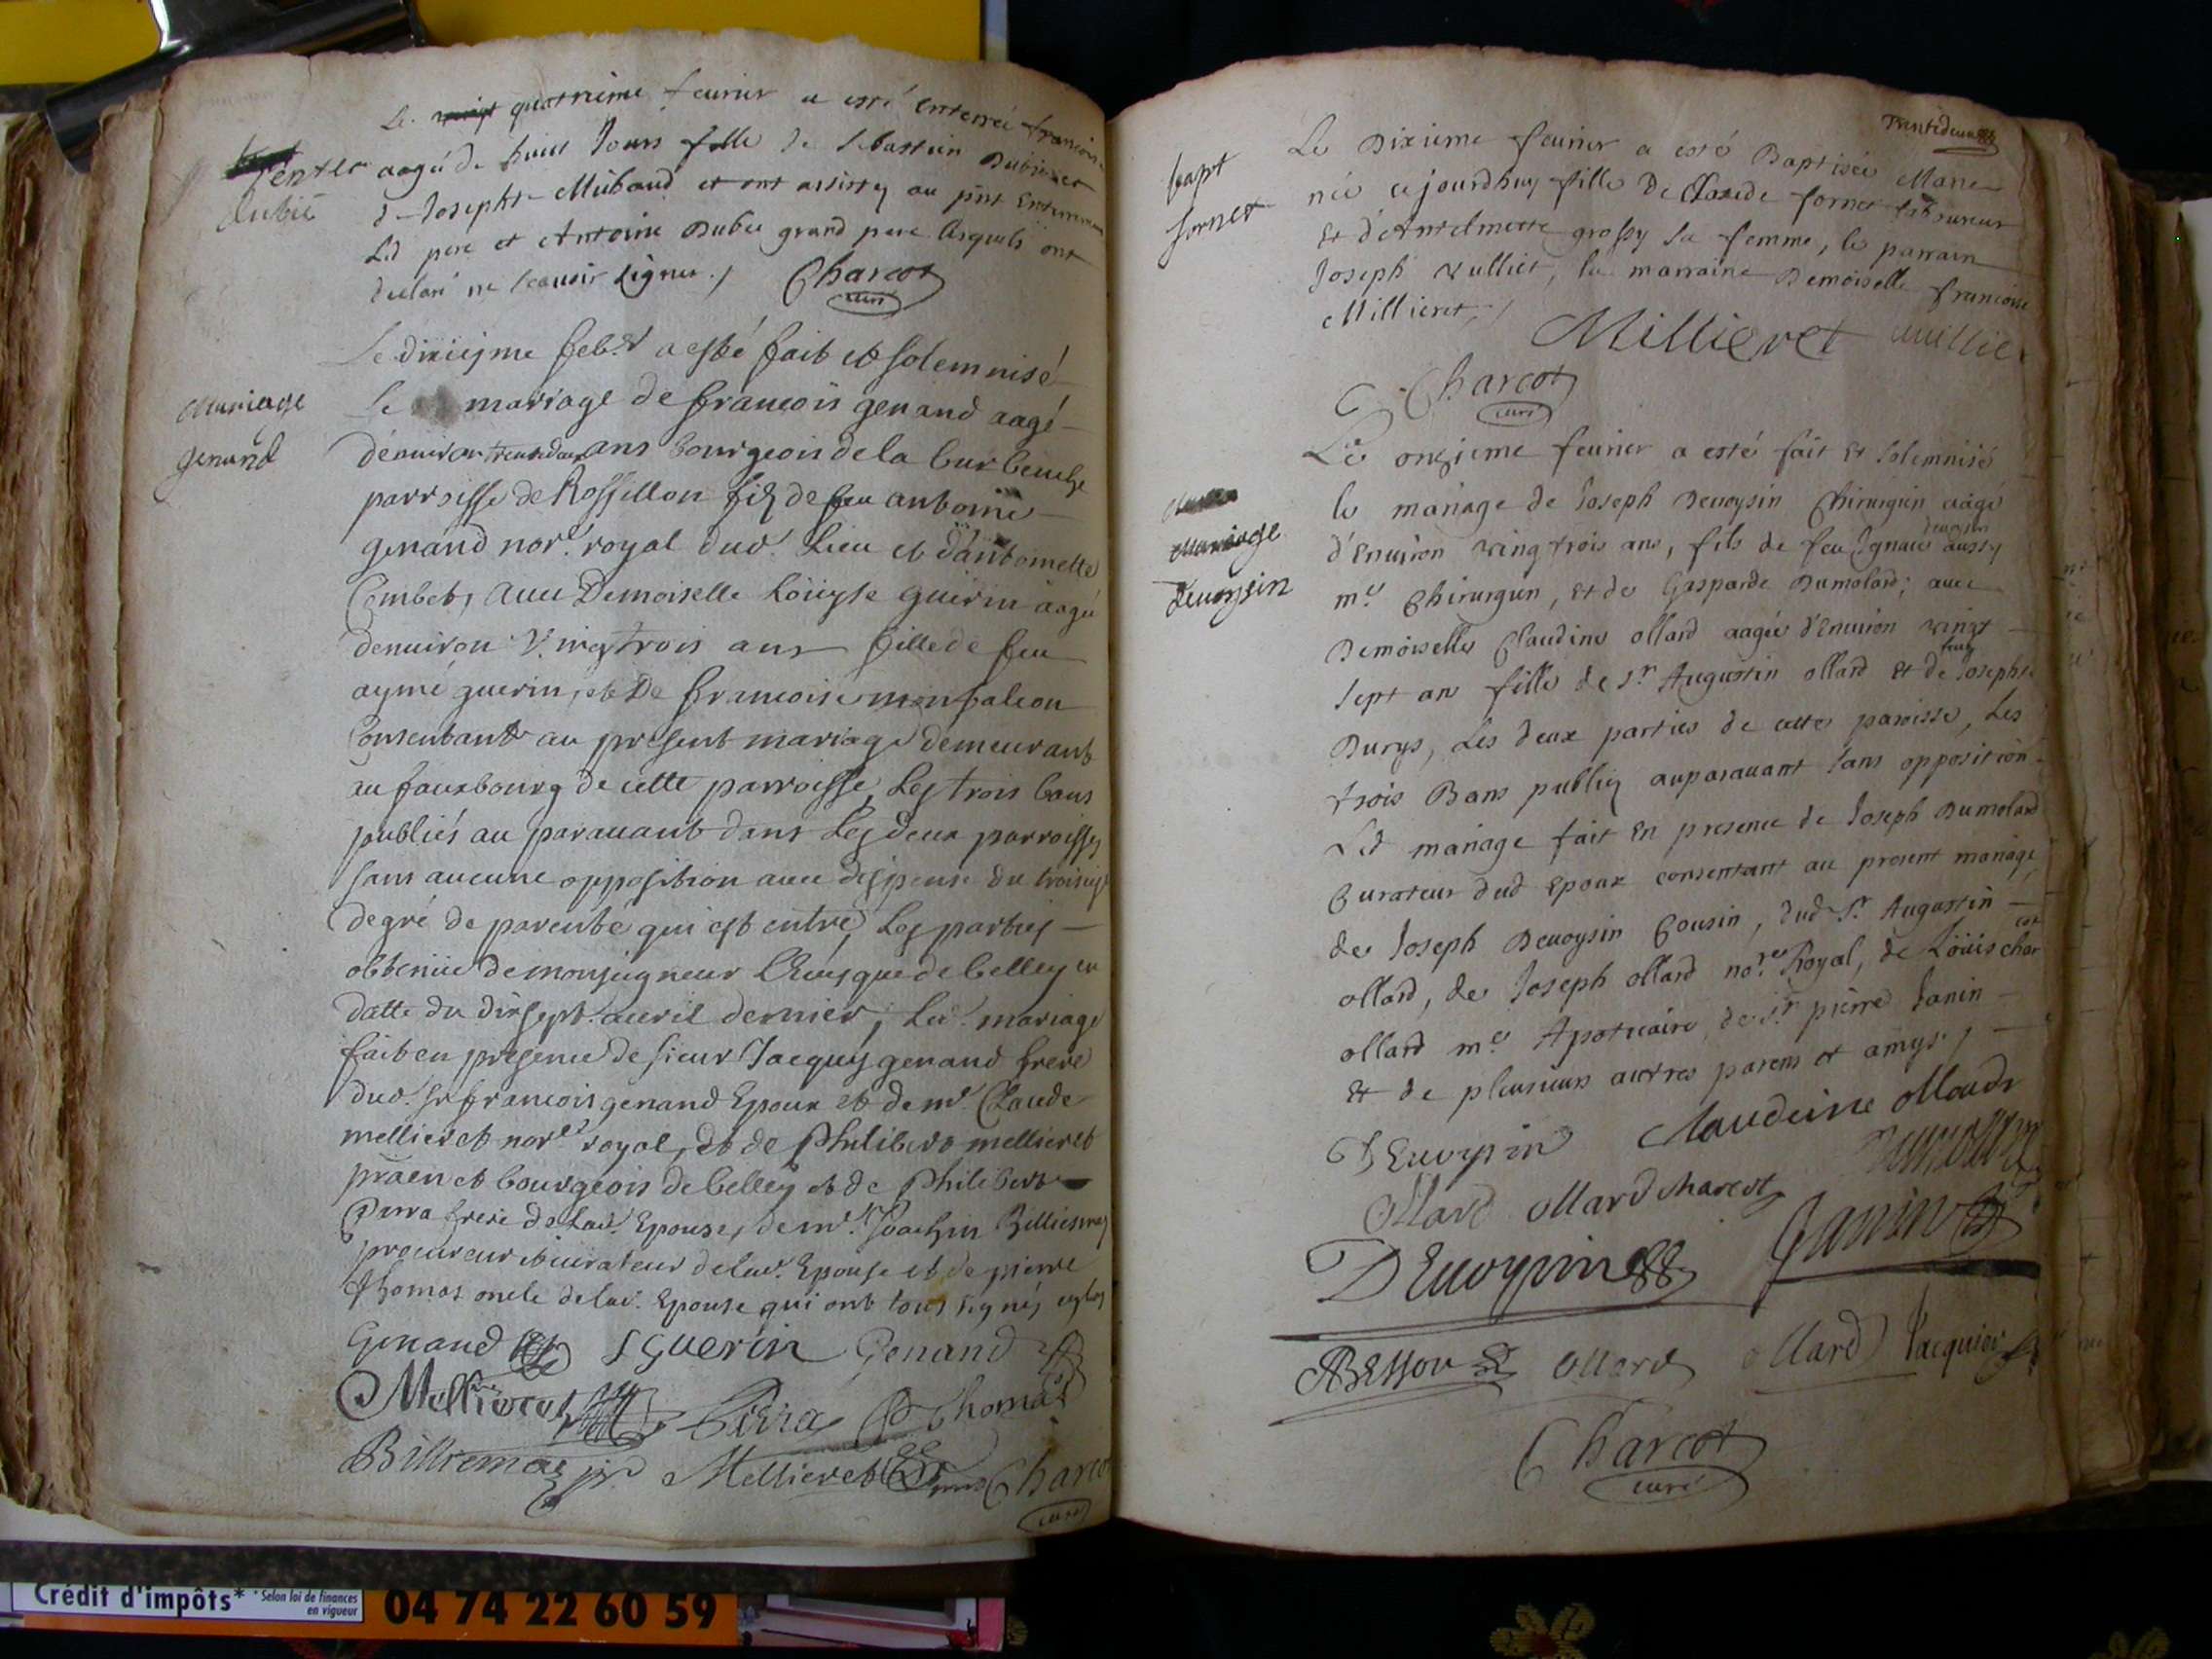 Le vingt quatrieme feurier a esté enterrée francoise
enter aagée de huict Jours fille de sebastien Dubie et
Dubié
d Josephte Mubaud et ont assisty au pnt Enterrement
Led pere et Antoine Dubie grand pere lesquels ont
declaré ne scauoir signer /. Charcot
curé
Le dixiesme feb.er a esté fait et solemnisé
mariage
genand
Le mariage de francois genand aagé
denuiron trente deux ans bourgeois de la burbenche
parroisse de Rossillon fils de feu antoine
genand nore. royal dud. Lieu et d'antoinette
Combet, auec Demoiselle Loüyse guerin aagée
denuiron vingt trois ans fille de feu
aymé guerin, et De francoise monfalcon
Consentante au present mariage demeurant
au fauxbourg de cette parroisse, Les trois bans
publiés au parauant dans Les deux parroisses
sans aucune opposition auec dispense du troisiesme
degré de parenté qui est entre Les parties
obtenüe de monseigneur L'Euesque de belley en
datte du dixsept auril dernier, Led. mariage
fait en presence de sieur Jacques genand frere
dud. sr francois genand Epoux et de me. Claude
mellieret nore. royal, et de Philibert mellieret
praen et bourgeois de belley et de Philibert
Pirra frere de lad. Epouse, de me. Joachin Billiemaz
procureur et curateur de lad. Epouse et de pierre
Thomas oncle de lad. Epouse qui ont tous signés
Genand L Guerin Genand
Mellieret Pirra P Thomas
Billiemaz Mellieret Charcot
curé
Trente deux
bapt
fornet
Le Dixieme feurier a esté Baptisée Marie
née cejourdhuy fille De Claude fornet laboureur
Et d'Antelmette grossy sa femme, le parrain
Joseph vulliet, la marraine Demoiselle francoise
Millieret, /
Millieret vullie
Charcot
curé
Le onzieme feurier a esté fait Et solemnisé
Mariage
Deuoysin
le mariage de Joseph Deuoysin Chirurgien aagé
deuoysin
d'Enuiron vingtrois ans, fils de feu Ignace aussy
me. Chirurgien, et de Gasparde Dumolard; auec
Demoiselle Claudine ollard aagée d'Enuiron vingt
feue
sept an fille de sr Augustin ollard Et de Josephte
Durys, Les deux parties de cette paroisse, Les
trois Bans publiez auparauant sans opposition
Led mariage fait En presence de Joseph Dumolard
Curateur dud Epoux consentant au present mariage
de Joseph Deuoysin Cousin, dud Sr. Augustin
cot
ollard, de Joseph ollard nore. Royal, de Loüis char
ollard me. Apoticaire, de Sr pierre Janin
Et de plusieurs autres parens et amys. /
DEuoysin Claudeine ollard
Ollard ollard charcot
DEuoysin Janin
Besson ollard ollard Jacquier
Charcot
curé
Crédit d'impôts* * Selon loi de finances
en vigueur
04 74 22 60 59